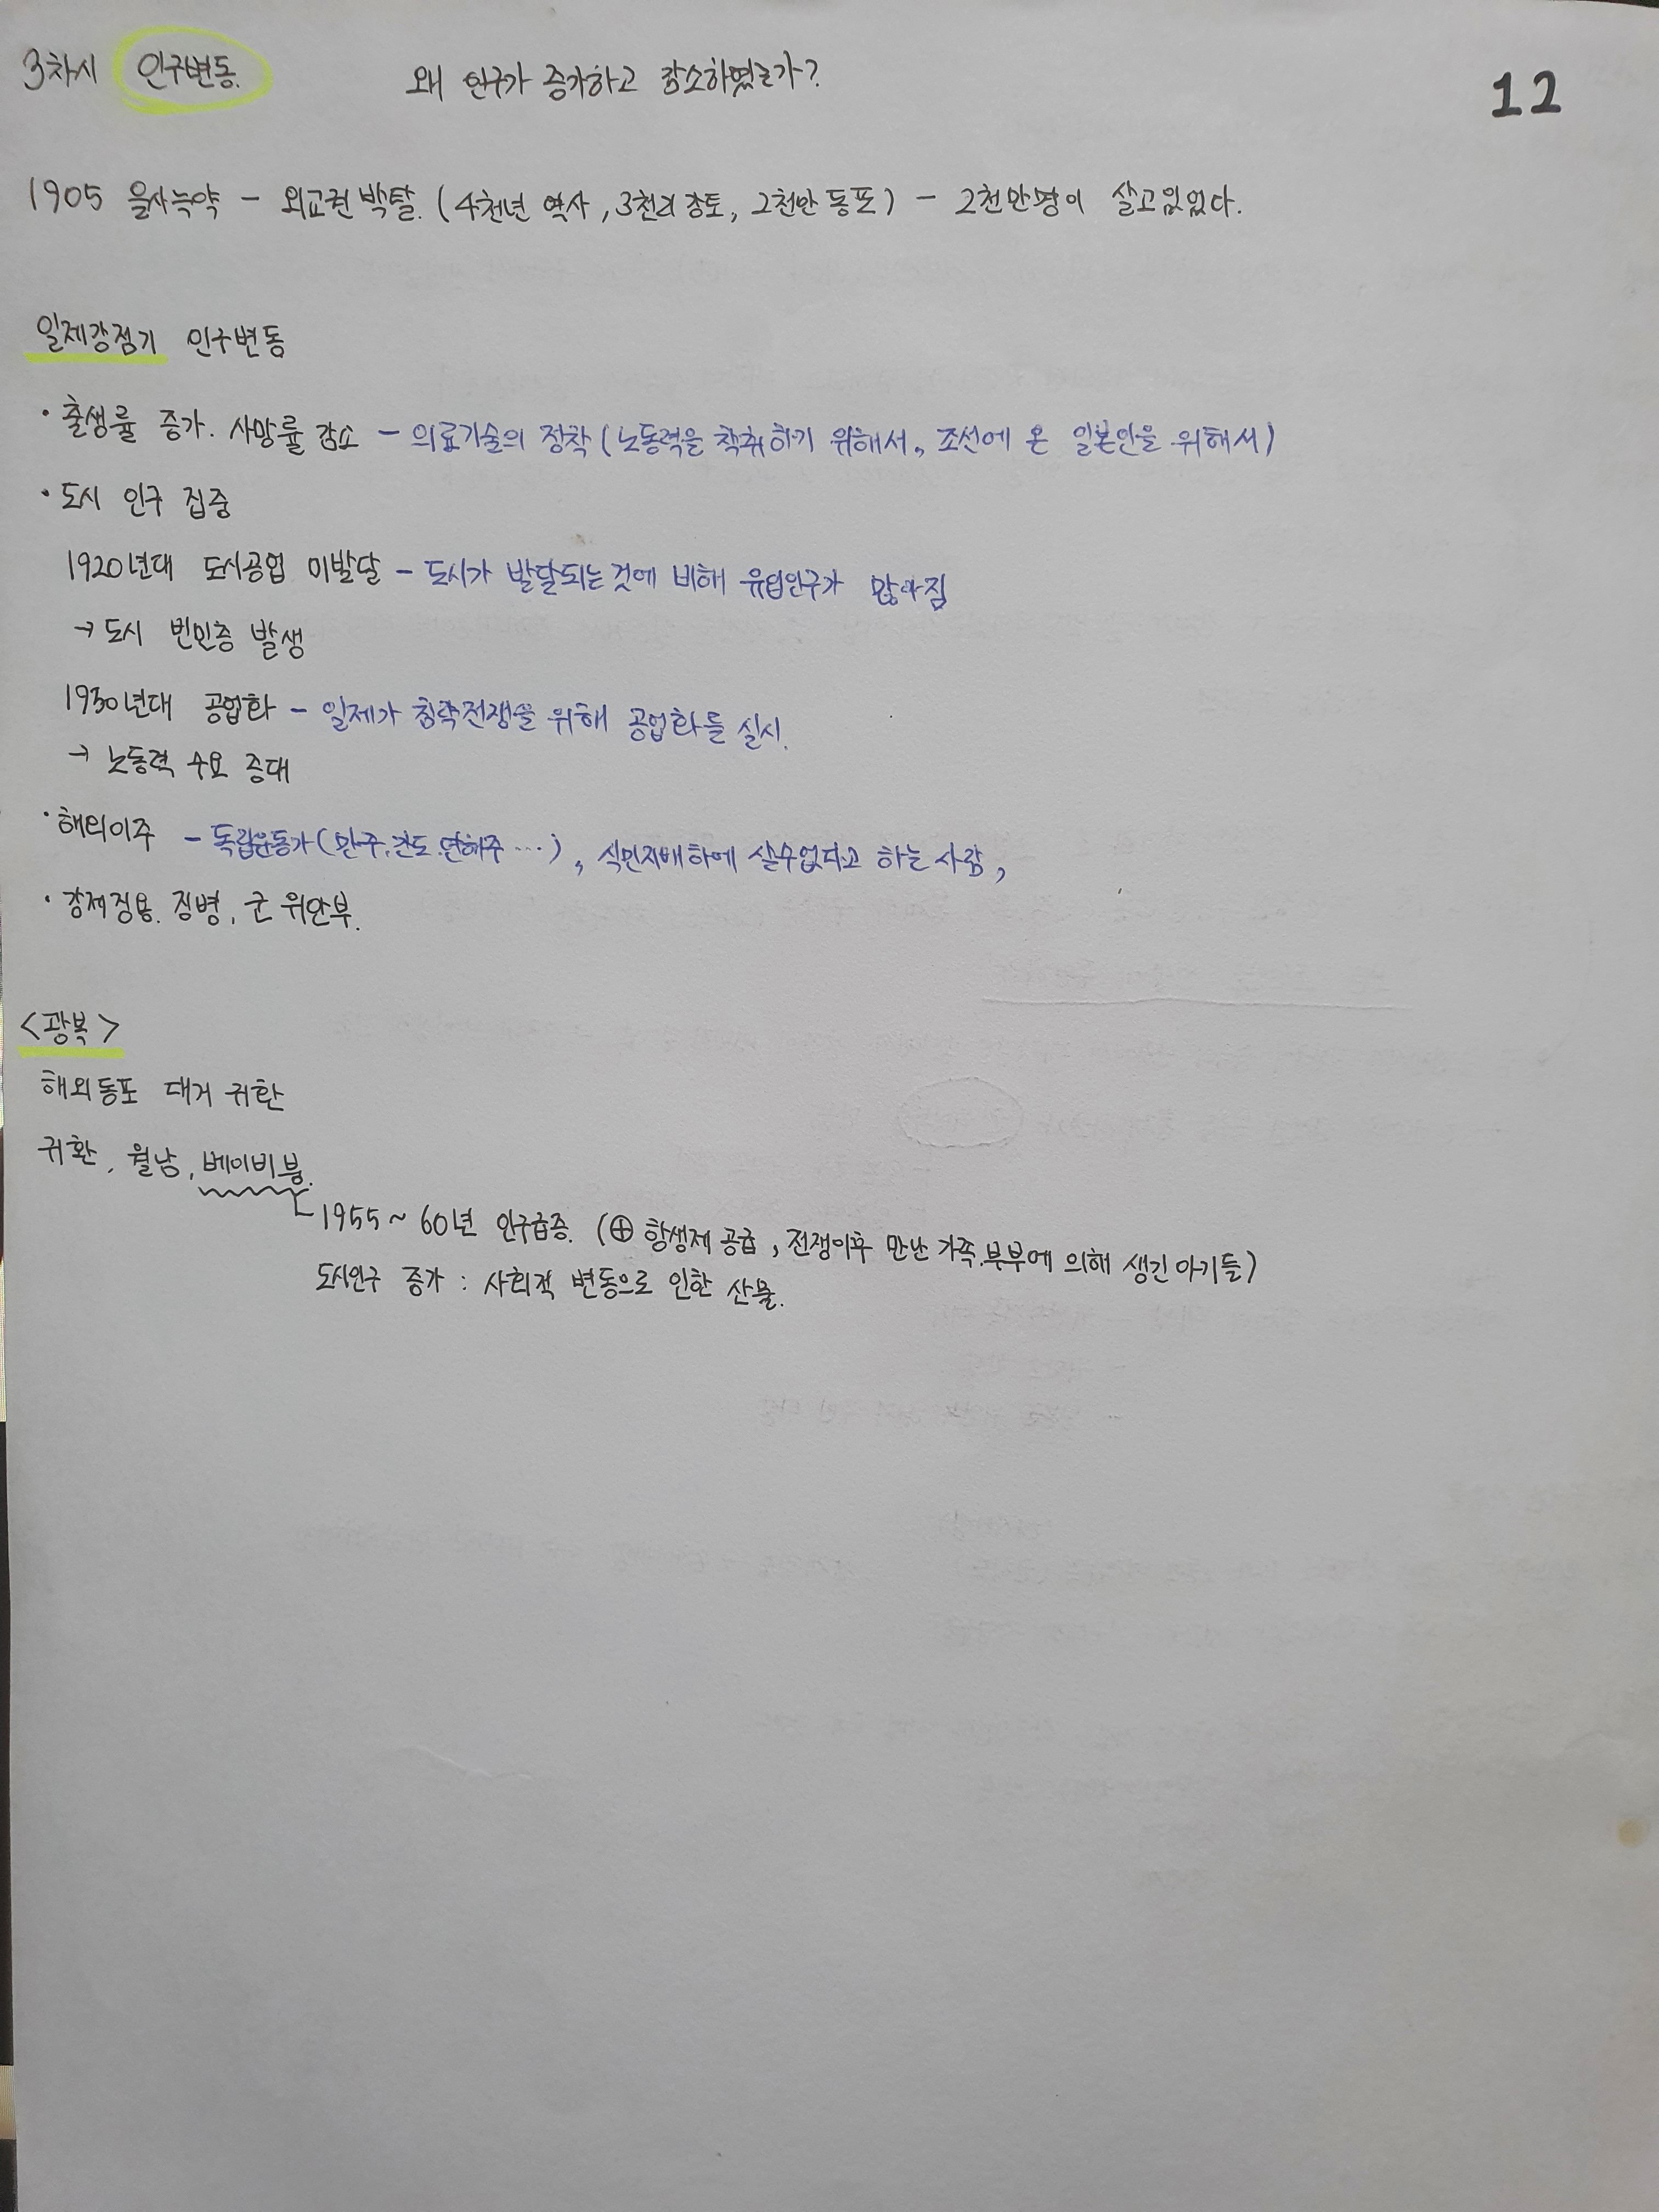 3차시 인구변동. 왜 인구가 증가하고 감소하였는가?
12
1905 을사늑약 - 외교권 박탈. (4천년 역사, 3천리 강토, 2천만 동포) - 2천만명이 살고있었다.
일제강점기 인구변동
· 출생률 증가. 사망률 감소 - 의료기술의 정착 (노동력을 착취하기 위해서, 조선에 온 일본인을 위해서)
· 도시 인구 집중
1920년대 도시공업 미발달 - 도시가 발달되는 것에 비해 유입인구가 많아짐
→ 도시 빈민층 발생
1930년대 공업화 - 일제가 침략전쟁을 위해 공업화를 실시.
→ 노동력 수요 증대
· 해외이주 - 독립운동가 (만주.간도.연해주 …), 식민지배하에 살수없다고 하는 사람,
· 강제징용. 징병, 군 위안부.
<광복>
해외동포 대거 귀환
귀환, 월남, 베이비붐.
1955~60년 인구급증. (⊕ 항생제 공급, 전쟁이후 만난 가족.부부에 의해 생긴 아기들)
도시인구 증가 : 사회적 변동으로 인한 산물.